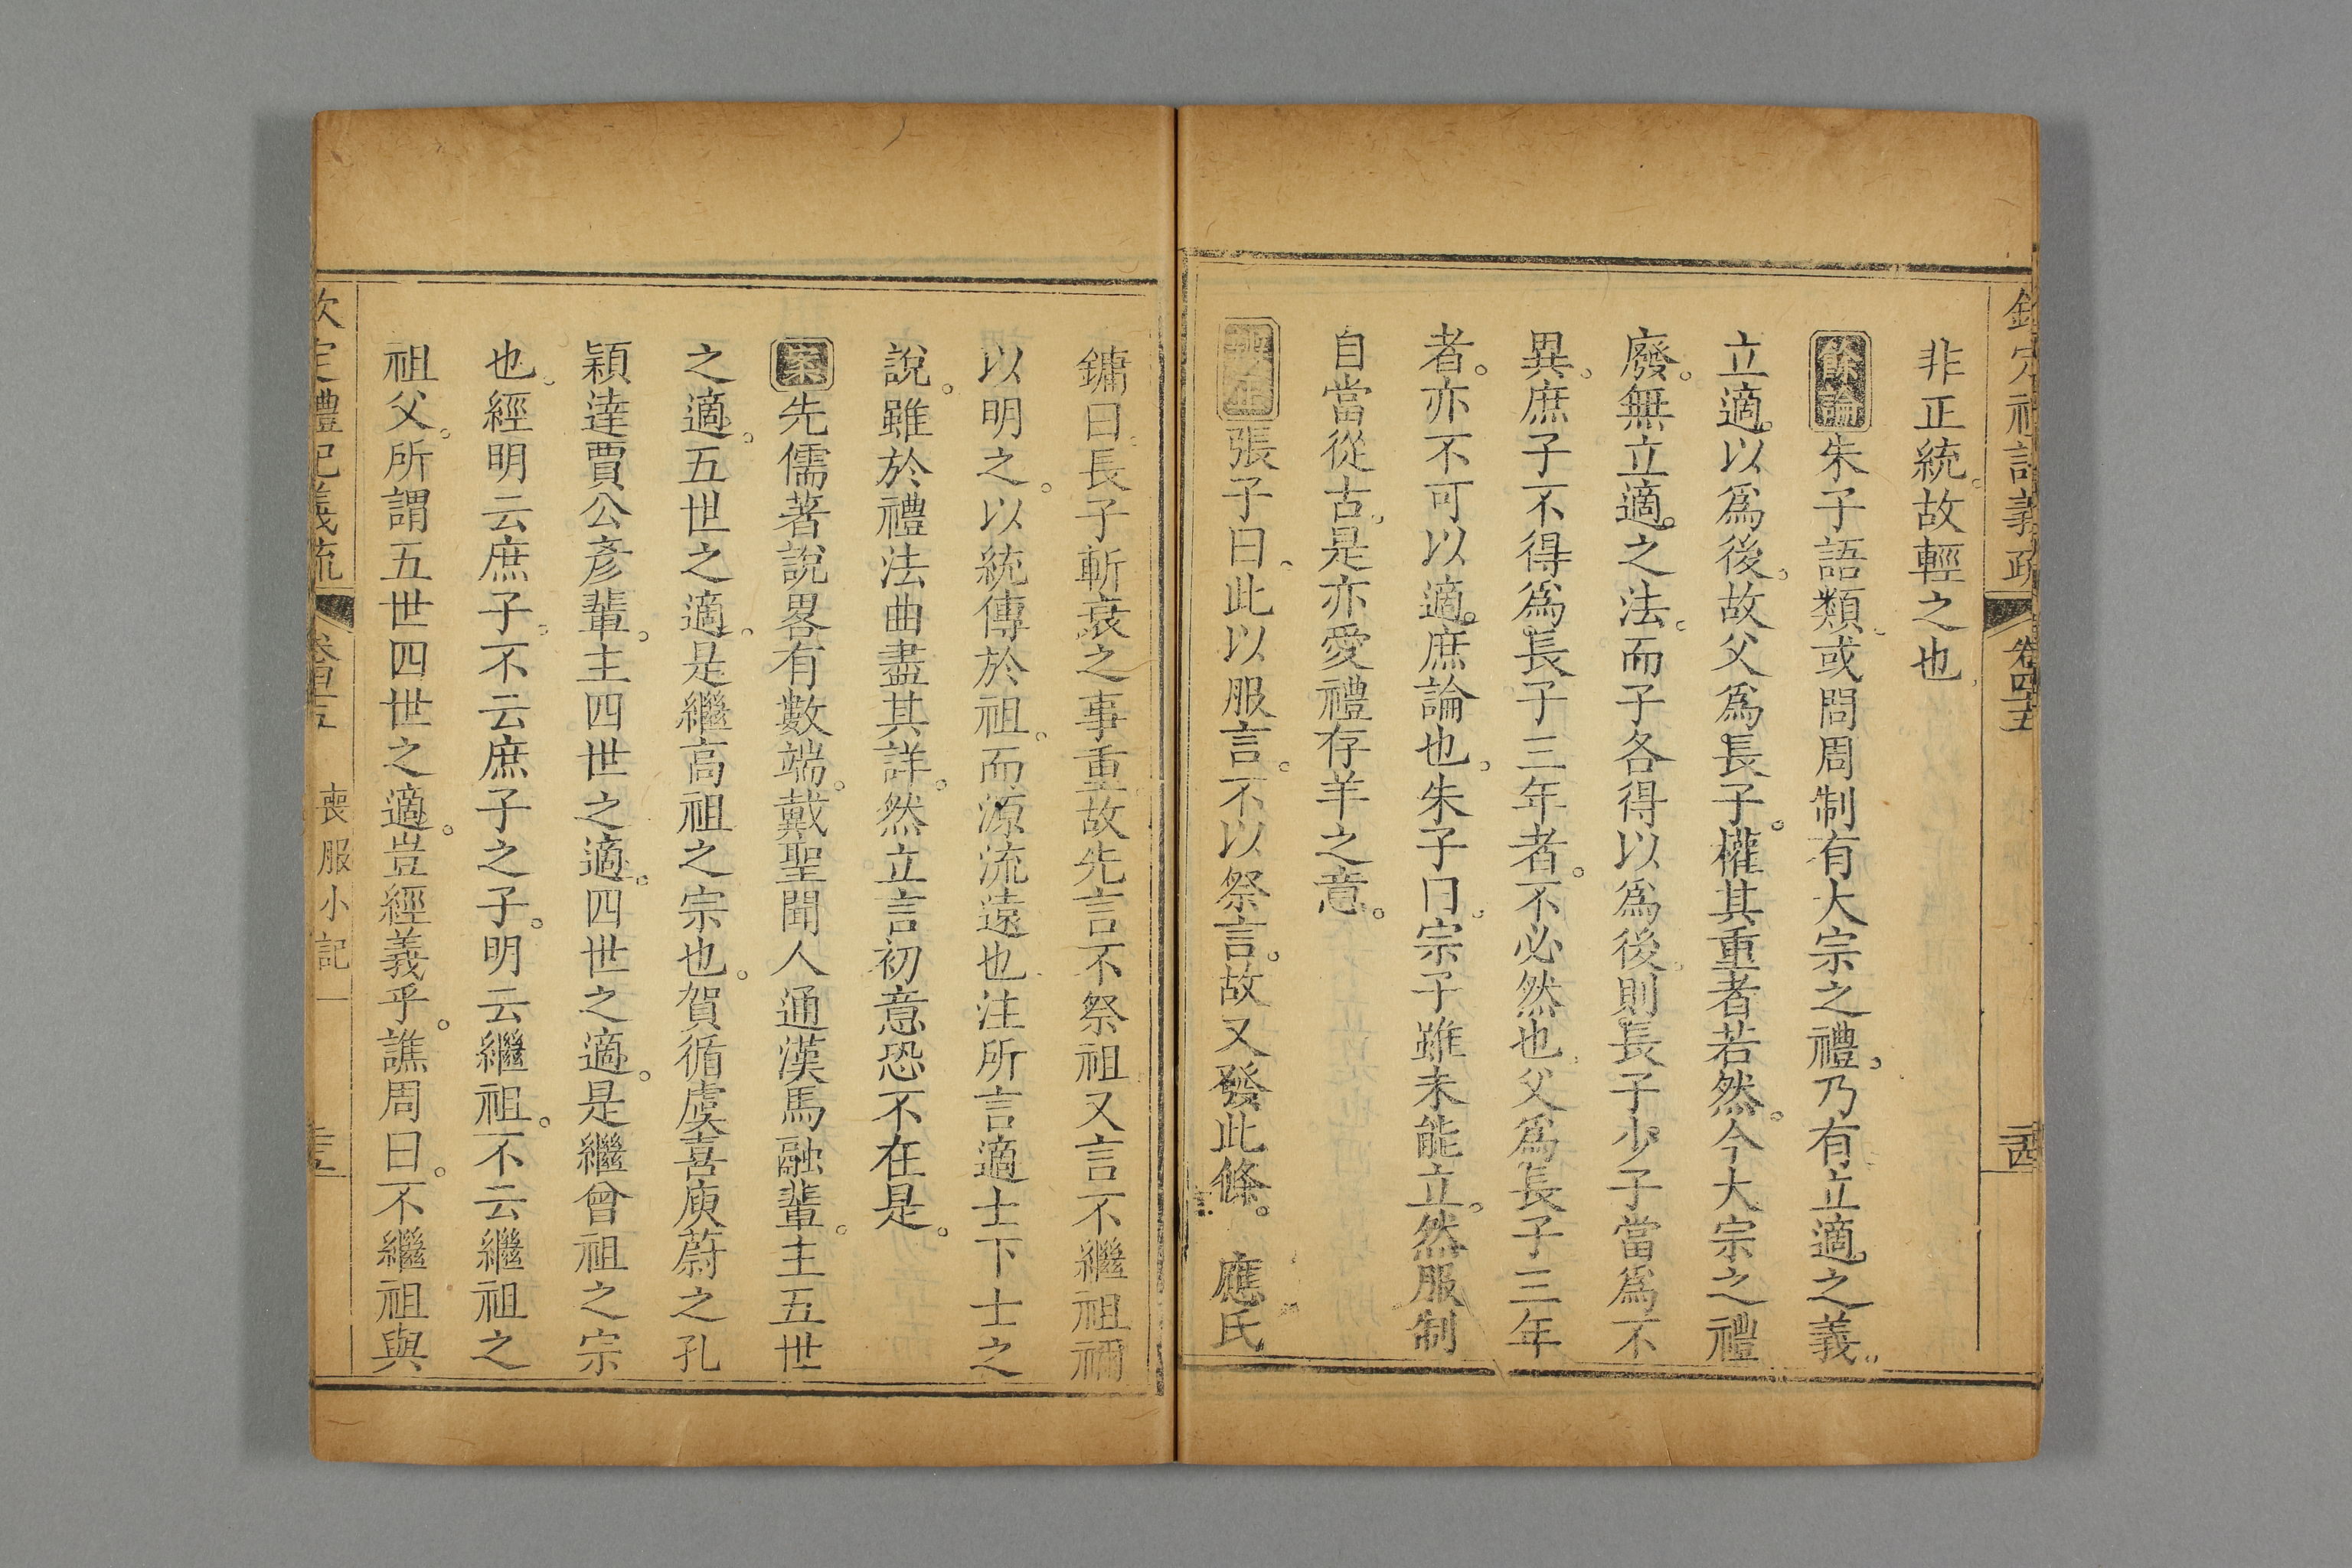 欽定禮記義疏 卷四十五
非正統故輕之也
餘論朱子語類或問周制有大宗之禮乃有立適之義
立適以爲後故父爲長子權其重者若然今大宗之禮
廢無立適之法而子各得以爲後則長子少子當爲不
異庶子不得爲長子三年者不必然也父爲長子三年
者亦不可以適庶論也朱子曰宗子雖未能立然服制
自當從古是亦愛禮存羊之意
張子曰此以服言不以祭言故又發此條 應氏
鏞曰長子斬衰之事重故先言不祭祖又言不繼祖禰
以明之以統傳於祖而源流遠也注所言適士下士之
說雖於禮法曲盡其詳然立言初意恐不在是
案先儒著說畧有數端戴聖聞人通漢馬融輩主五世
之適五世之適是繼高祖之宗也賀循虞喜庾蔚之孔
穎達賈公彥輩主四世之適四世之適是繼曾祖之宗
也經明云庶子不云庶子之子明云繼祖不云繼祖之
祖父所謂五世四世之適豈經義乎譙周曰不繼祖與
欽定禮記義疏 喪服小記一